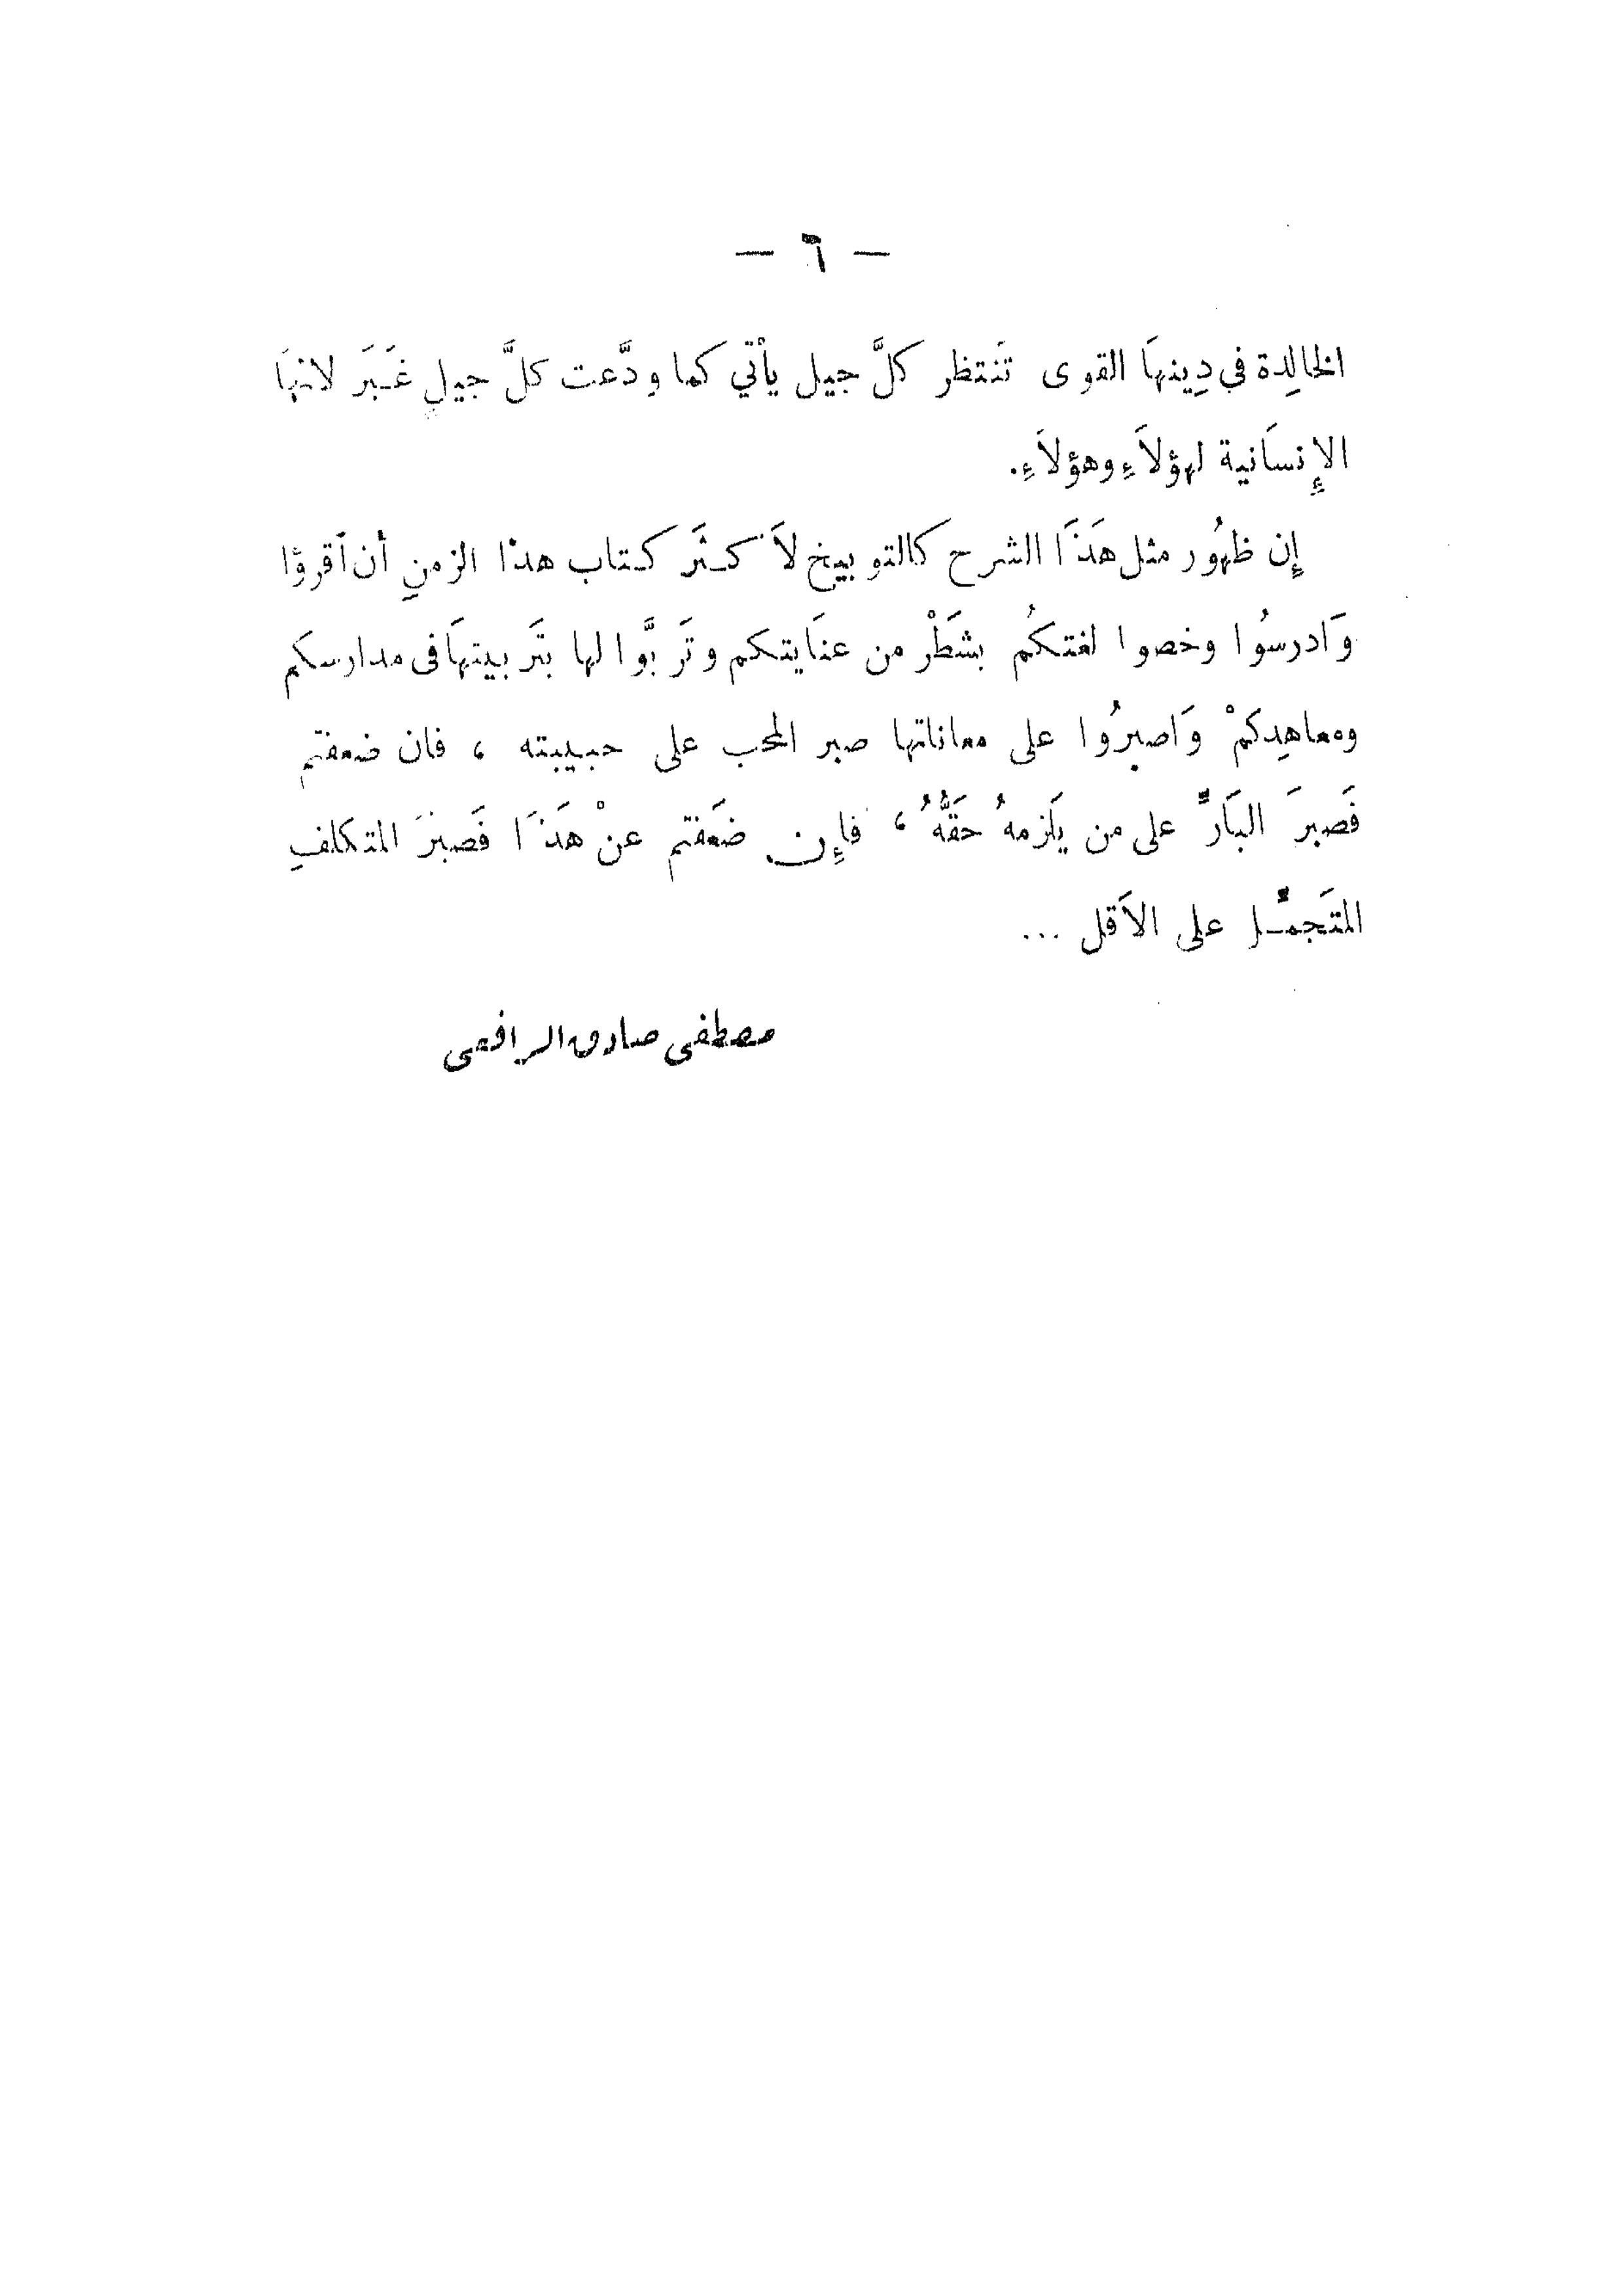 — ٦ —
الخالِدة في دِينهَا القوى تَنتظر كلَّ جيل يأتي كما ودَّعت كلَّ جيلٍ غَبَرَ لانهَا
الإِنسَانية لهؤلاَءِ وهؤلاَءِ.
إِن ظهُور مثل هَذَا الشرح كالتوبيخ لاَ كثَر كتاب هذا الزمنِ أن اَقرؤا
وَادرسُوا وخصوا لغتكُم بشَطْر من عنَايتكم وتَربَّوا لها بتَربيتهَا فى مدارسكَم
ومعاهِدكمْ وَاصبرُوا على معاناتها صبر المحب على حبيبته ، فان ضعفتم
فَصبرَ البَارِّ على من يَلزمهُ حقَّهُ ، فإِن ضعَفتم عنْ هَذَا فَصبرَ المتكلفِ
المتَجمِّل على الاَقل ...
مصطفى صادق الرافعى